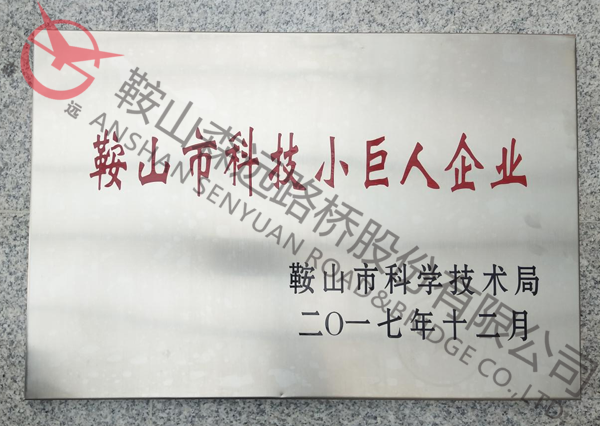 鞍山市科技小巨人企业
鞍山市科学技术局
二〇一七年十二月
远
鞍山森远路桥股份有限公司
ANSHAN SENYUAN ROAD&BRIDGE CO.,LTD